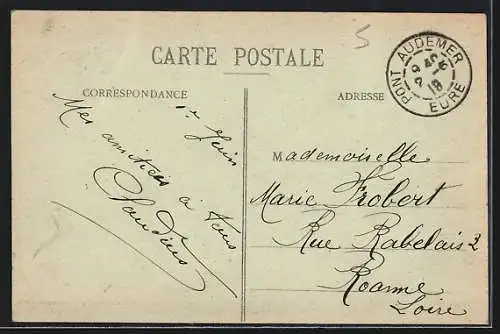 5
CARTE POSTALE
CORRESPONDANCE
ADRESSE
PONT AUDEMER
EURE
1er Juin
Mes amitiés à tous
Claudius
Mademoiselle
Marie Frobert
Rue Rabelais 2
Roanne
Loire